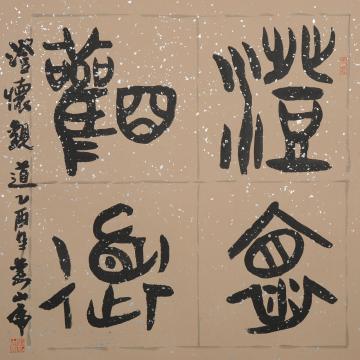 澄懷
觀道
澄懷觀道乙酉年